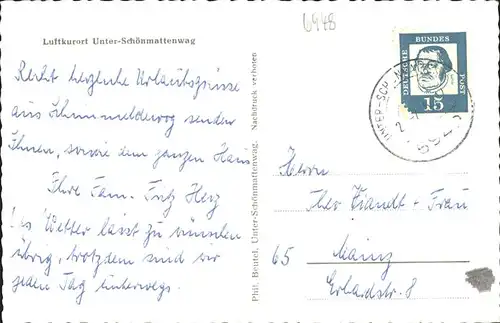 6948
Luftkurort Unter-Schönmattenwag
DEUTSCHE BUNDESPOST
15
Recht herzliche Urlaubsgrüsse
aus Schimmeldewog senden
Ihnen, sowie dem ganzen Haus
Ihre Fam. Fritz Herz
Das Wetter lässt zu wünschen
übrig, trotzdem sind wir
jeden Tag unterwegs.
Phil. Beutel, Unter-Schönmattenwag. Nachdruck verboten
UNTER-SCH
Herrn
Theo + Frau
65 Mainz
Erhardstr. 8